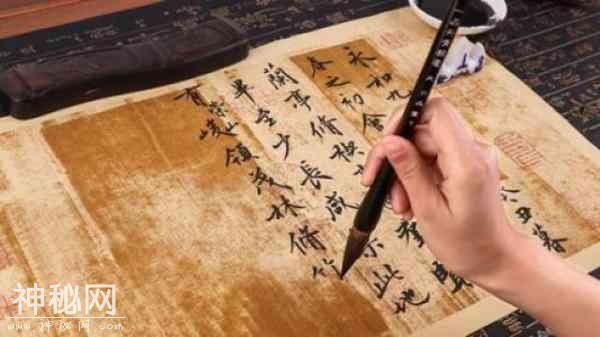 永和九癸丑暮
春之初會
蘭亭脩禊羣賢
畢至少長咸集此地
有崇山峻領茂林脩竹
神秘网